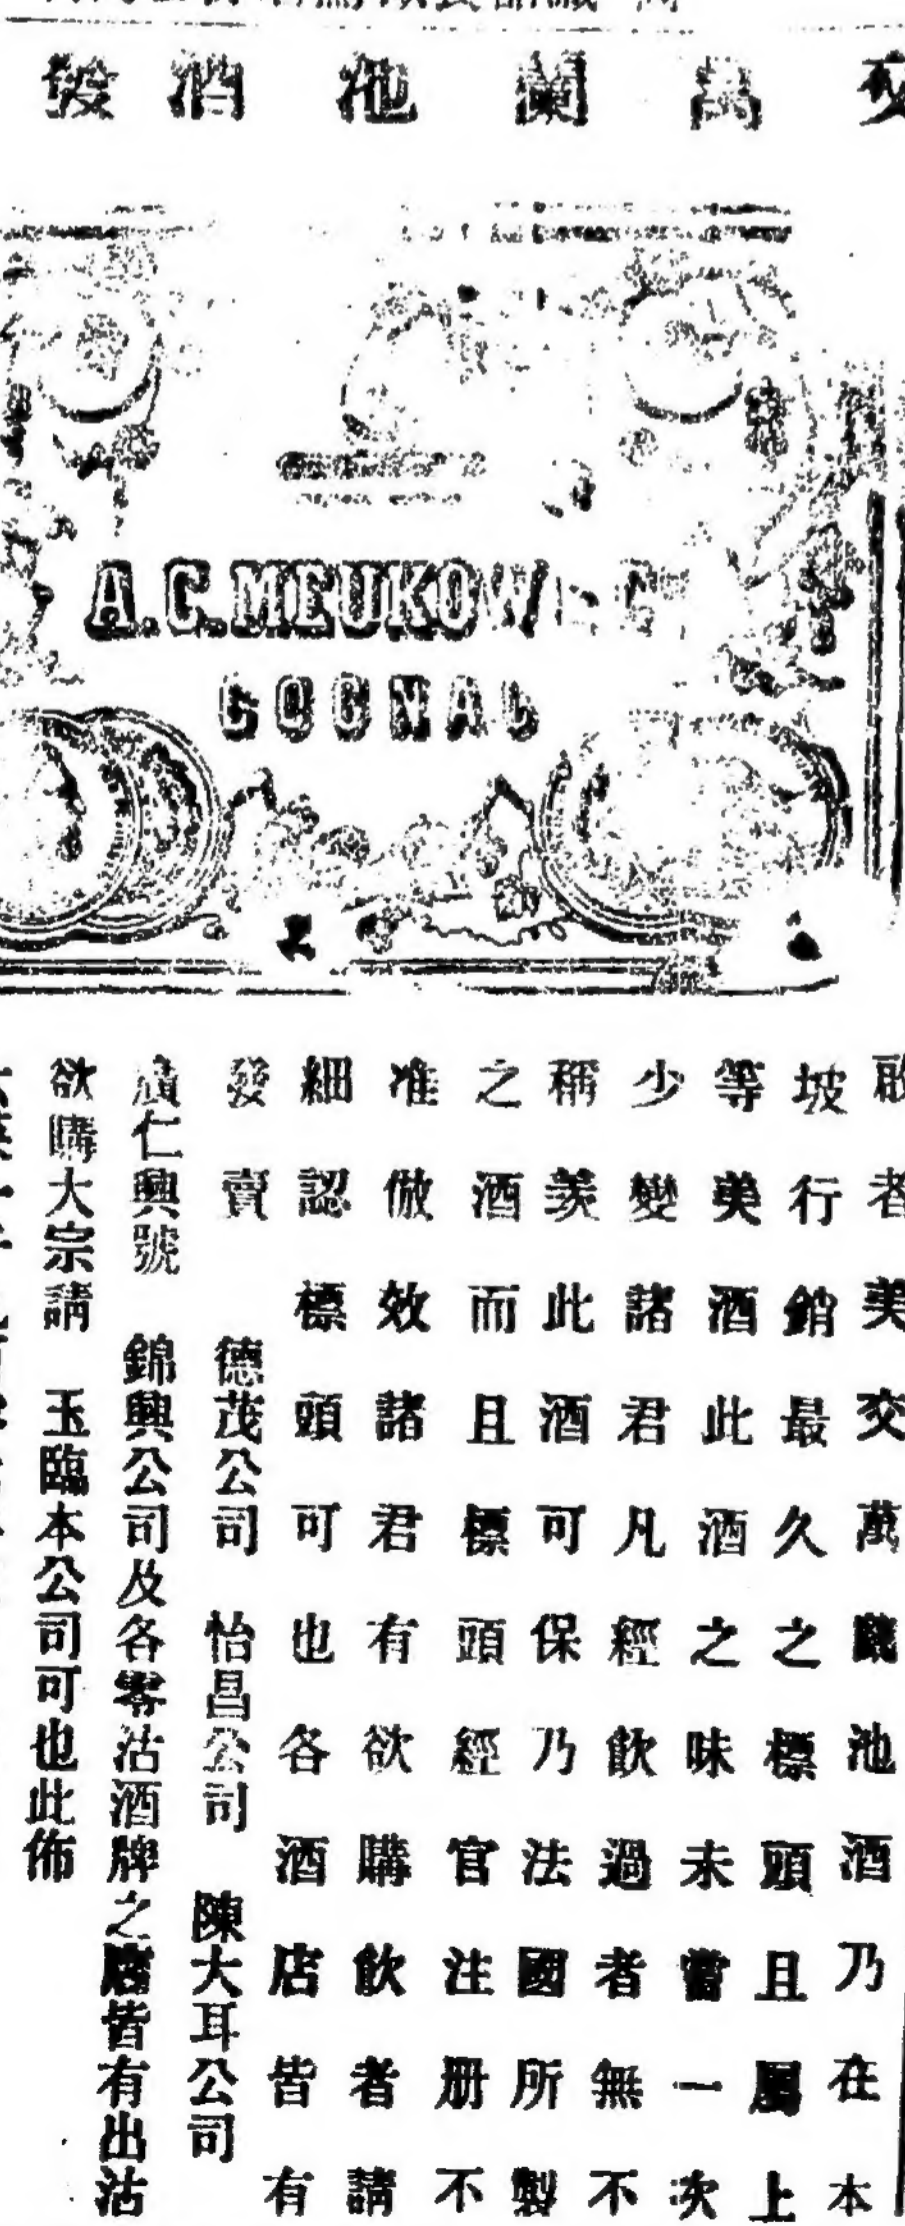 交萬蘭池酒發
A.C.MEUKOW & C
COGNAC
啟者美交萬蘭池酒乃在本
坡行銷最久之標頭且屬上
等美酒此酒之味未嘗一次
少變諸君凡經飲過者無不
稱羨此酒可保乃法國所製
之酒而且標頭經官注册不
准倣效諸君有欲購飲者請
細認標頭可也各酒店皆有
發賣 德茂公司 怡昌公司 陳大耳公司
廣仁興號 錦興公司及各零沽酒牌之店皆有出沽
欲購大宗請 玉臨本公司可也此佈